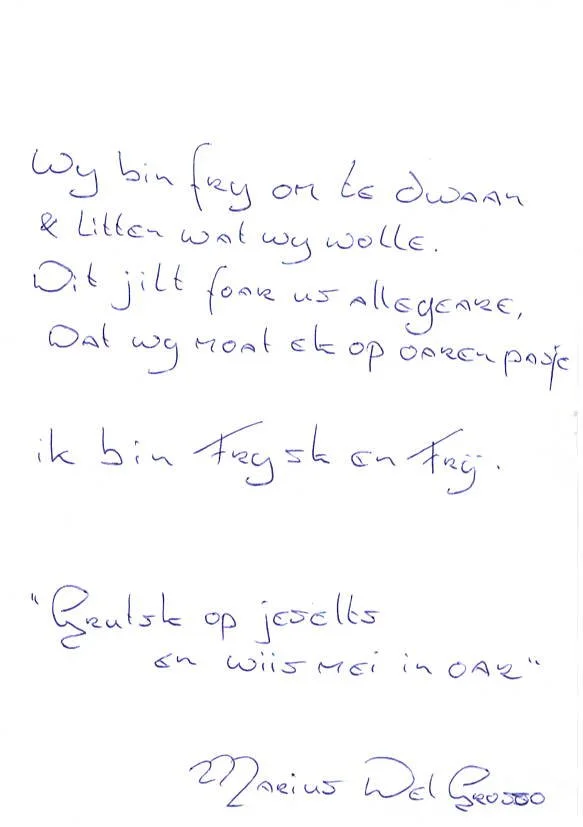 Wy bin fry om te dwaan
& litten wat wy wolle.
Dit jilt foar us allegeare,
Dat wy moat ek op oaren passe
ik bin Frysk en Frij.
"Grutsk op jeselts
en wiis mei in oar"
Marius Del Grosso